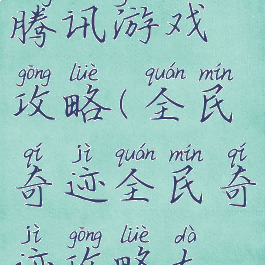 腾讯游戏
gōng lüè quán mín
攻略(全民
qí jì quán mín qí
奇迹全民奇
jì gōng lüè dà
迹攻略大